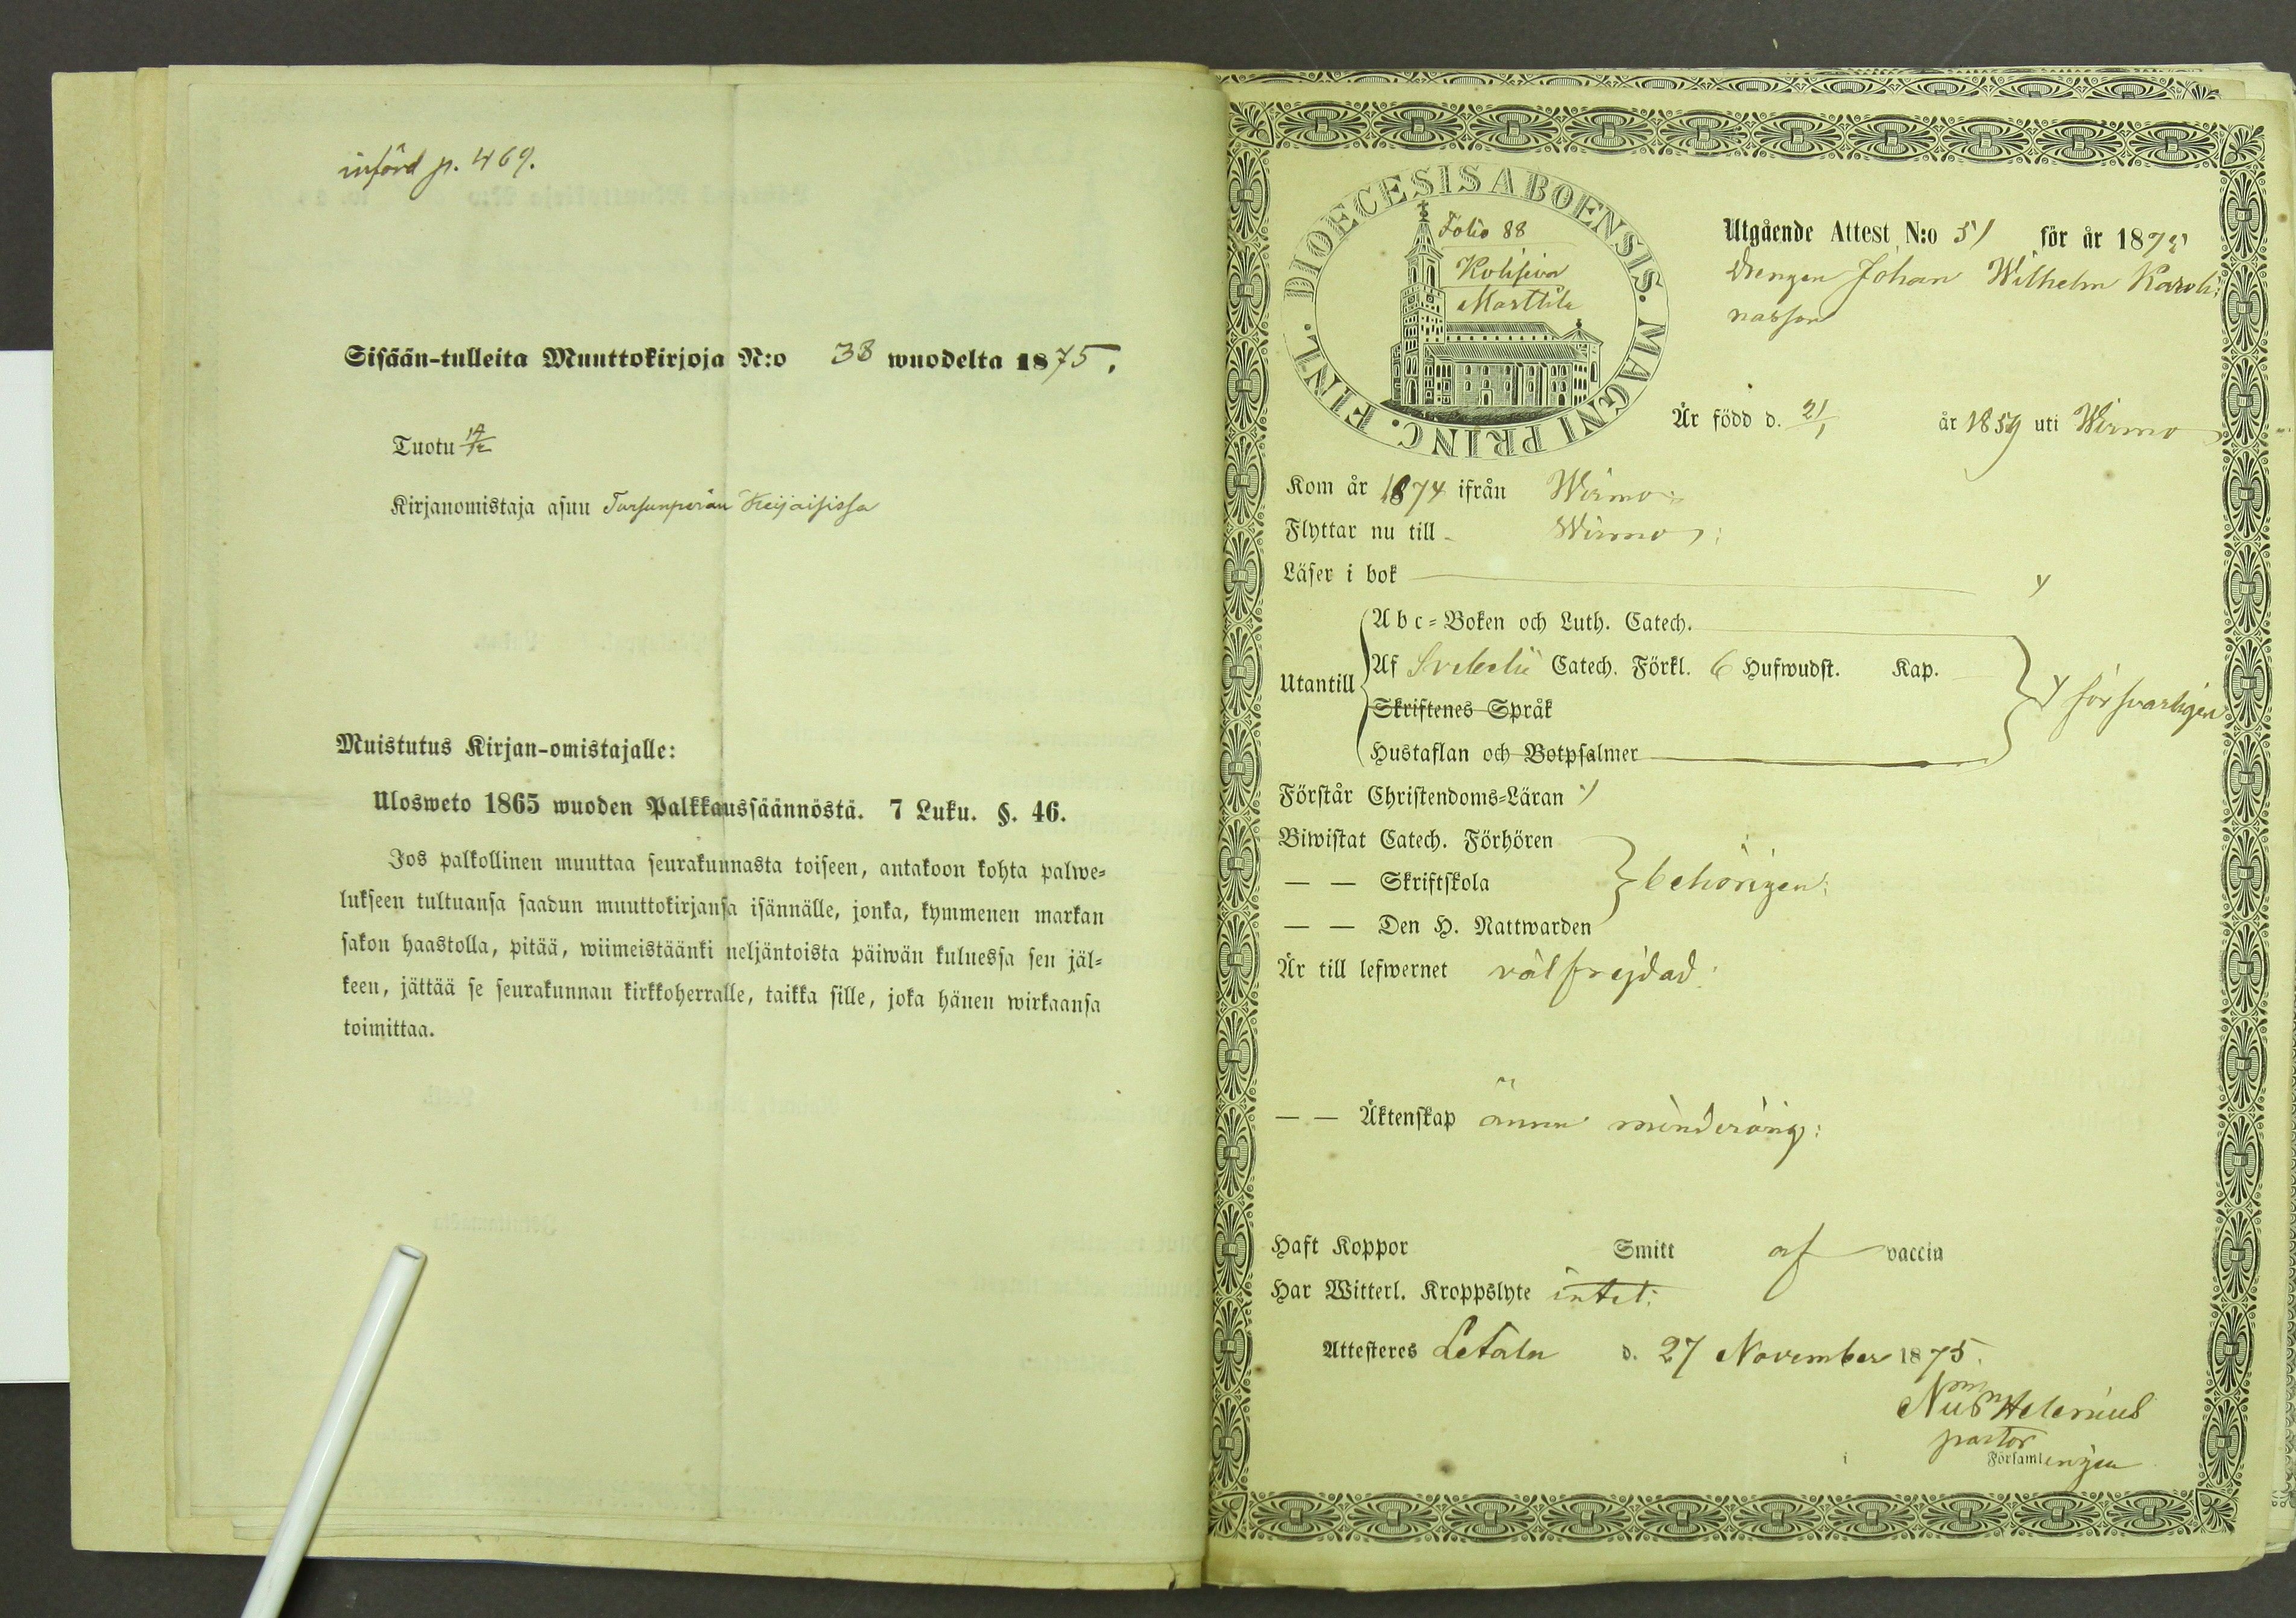 införd p. 469.
Sisään-tulleita Muuttokirjoja N:o 38 wuodelta 1875.
Tuotu
Kirjanomistaja asuu Tursunperän Heijaisissa
Muistutus Kirjan-omistajalle:
Ulosweto 1865 wuoden Palkkaussäännöstä. 7 Luku. §. 46.
Jos palkollinen muuttaa seurakunnasta toiseen, antakoon kohta palwe-
lukseen tultuansa saadun muuttokirjansa isännälle, jonka, kymmenen markan
sakon haastolla, pitää, wiimeistäänki neljäntoista päiwän kuluessa sen jäl-
keen, jättää se seurakunnan kirkkoherralle, taikka sille, joka hänen wirkaansa
toimittaa.
DIOECESIS ABOENSIS. MAGNI PRINC. FINL.
Folio 88
Marttila
Utgående Attest N:o 51 för år 1875
Drengen Johan Wilhelm Karoli:
nasson
Är född d. 21/1 år 1859 uti Wirmo
Kom år 1874 ifrån Wirmo:
Flyttar nu till Wirmo:
Läser i bok
Utantill
Abc-Boken och Luth. Catech.
Af Svebelii Catech. Förkl. 6 Hufwudst. Kap.
Skriftenes Språk
försvarligen
Hustaflan och Botpsalmer
Förstår Christendoms-Läran
Biwistat Catech. Förhören
— — Skriftskola
behörigen:
— — Den H. Nattwarden
Är till lefwernet välfrejdad:
— — Äktenskap ännu minderårig:
Haft Koppor Smitt af vaccin
Har Witterl. Kroppslyte intet:
Attesteres Letala d. 27 November 1875.
Helenius
pastor
i Församlingen